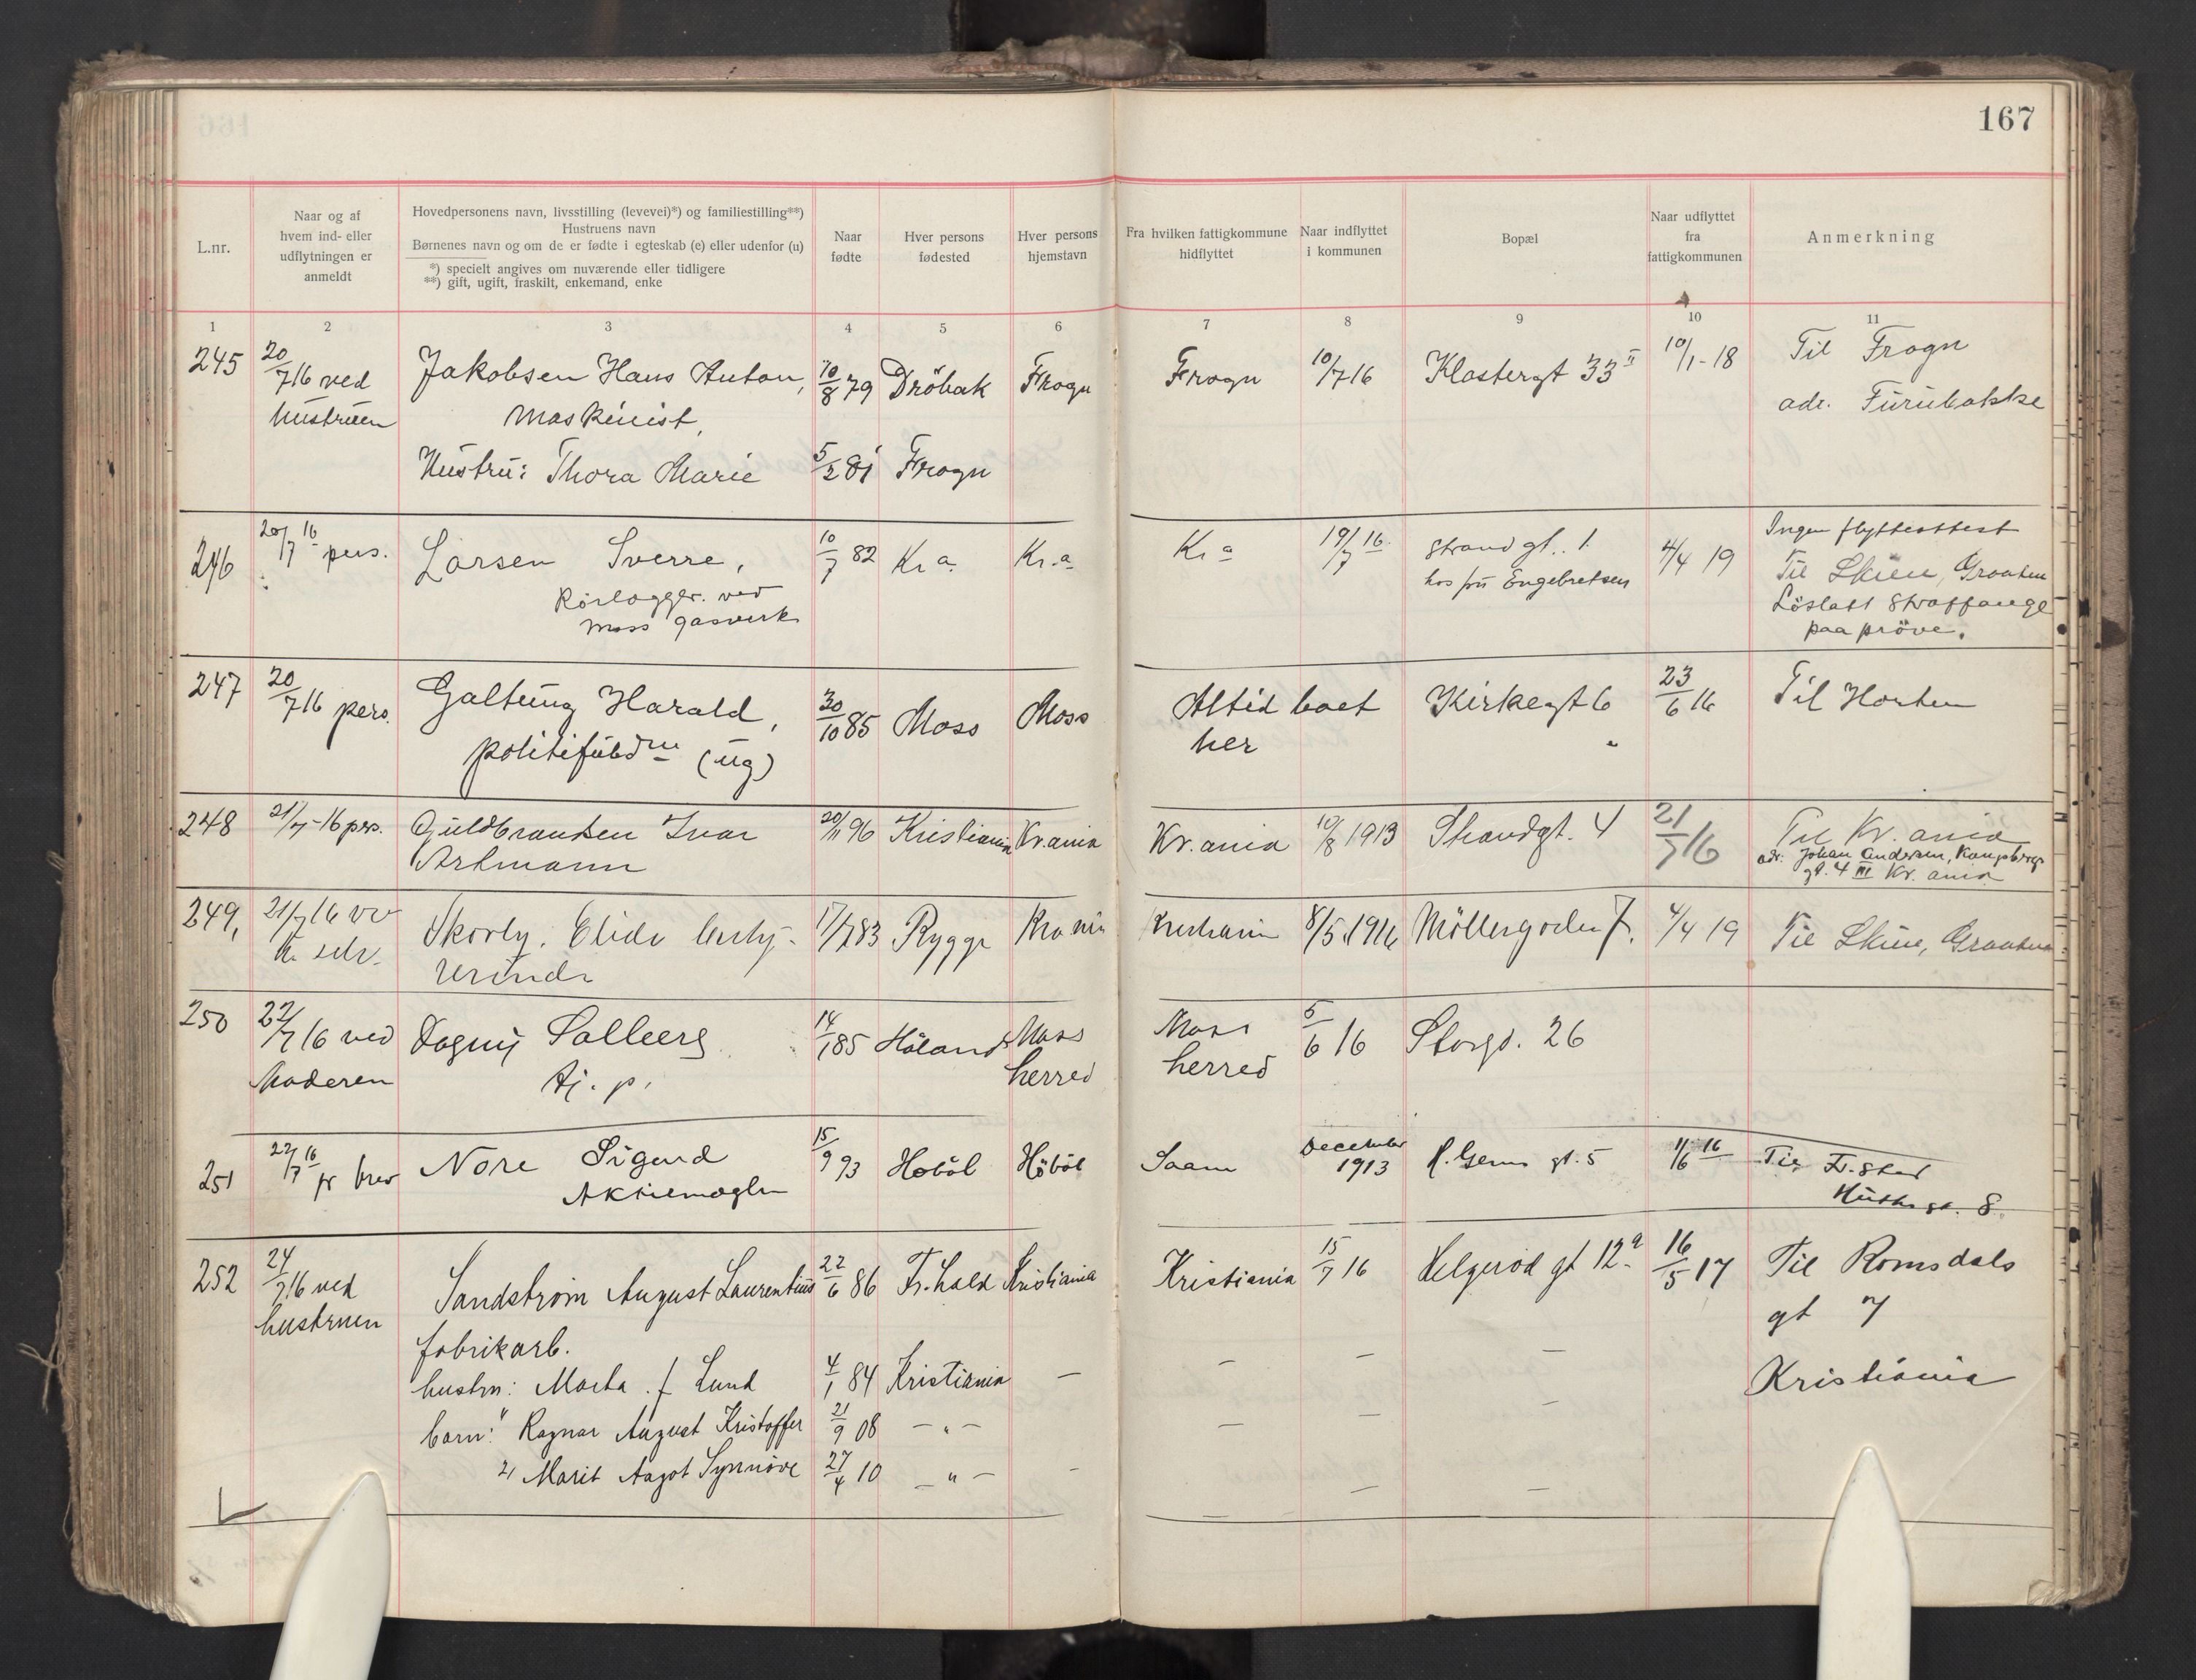 167
L.nr.
Naar og af
hvem ind- eller
udflytningen er
anmeldt
Hovedpersonens navn, livsstilling (levevei)*) og familiestilling**)
Hustruens navn
Børnenes navn og om de er fødte i egteskab (e) eller udenfor (u)
*) specielt angives om nuværende eller tidligere
**) gift, ugift, fraskilt, enkemand, enke
Naar
fødte
Hver persons
fødested
Hver persons
hjemstavn
Fra hvilken fattigkommune
hidflyttet
Naar indflyttet
i kommunen
Bopæl
Naar udflyttet
fra
fattigkommunen
Anmerkning
1 2 3 4 5 6 7 8 9 10 11
245 20/7 16 ved Jakobsen Hans Anton, 10/8 79 Dröbak Frogn Frogn 10/7 16 Klostergt 33 II 10/1-18 Til Frogn
hustruen maskinist, adr. Furubakke
Hustru: Thora Marie 5/2 81 Frogn
246 20/7 16 pers. Larsen Sverre, 10/7 82 Kr a. Kr.a. Kr a 19/7 16. Strandgt. 1. 4/4 19 Ingen flytteattest
Rörlægger. ved hos fru Engebretsen Til Skien, Graaten
Moss gasverk Löslatt straffange
paa pröve.
247 20/7 16 pers. Galtung Harald, 30/10 85 Moss Moss Altid boet Kirkegt 6 23/6 16 Til Horten
politifuldm (ug) her
248 21/7-16 pers. Guldbrandsen Ivar 20/11 96 Kristiania Kr.ania Kr.ania 10/8 1913 Strandgt. 4 21/7 16 Til Kr.ania
Artmann adr: Johan Andersen, Kongsberg
gt. 4 III Kr. ania
249, 21/7 16 Skorby. Elida besty- 17/7 83 Rygge 8/5 1916 Möllergaden 7. 4/4 19 Til Skien, Graaten
rerinde
250 22/7 16 ved Dagny Solberg 14/1 85 Höland Moss Moss 5/6 16 Storgd. 26
Moderen tj. p. herred herred
251 22/7 16 pr brev Nore Sigurd 15/9 93 Hobøl Höböl Saan December 1913 H. Gerns gt. 5 11/6 16 Til Fr.stad
Aktiemægler gt. 8.
252 24/7 16 ved Sandström August Laurentius 22/6 86 Fr.hald Kristiania Kristiania 15/7 16 Helgeröd gt 12a 16/5 17 Til Romsdals
hustruen gt 7
fabrikarb.
hustru: Marta f. Lund 4/1 84 Kristiania — — — — Kristiania
barn: 1) Ragnar August Kristoffer 21/9 08 — " — — — —
2) Marit Aagot Synnöve 27/4 10 — " — — — —